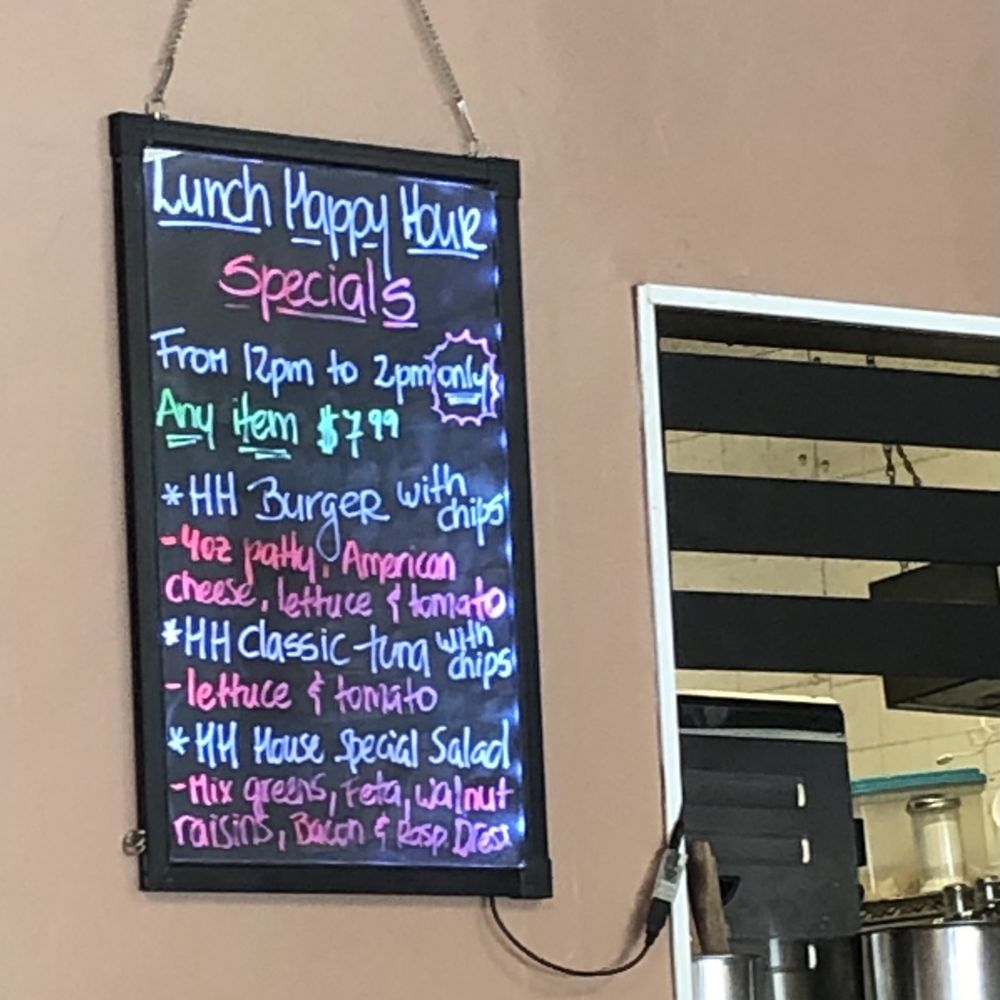 Lunch Happy Hour
Specials
From 12pm to 2pm only
Any item $7.99
*HH Burger with chips
-4oz patty, American
cheese, lettuce & tomato
*HH Classic tuna with chips
-lettuce & tomato
*HH House Special Salad
-Mix greens, Feta, walnut
raisins, Bacon & Rasp. Dress